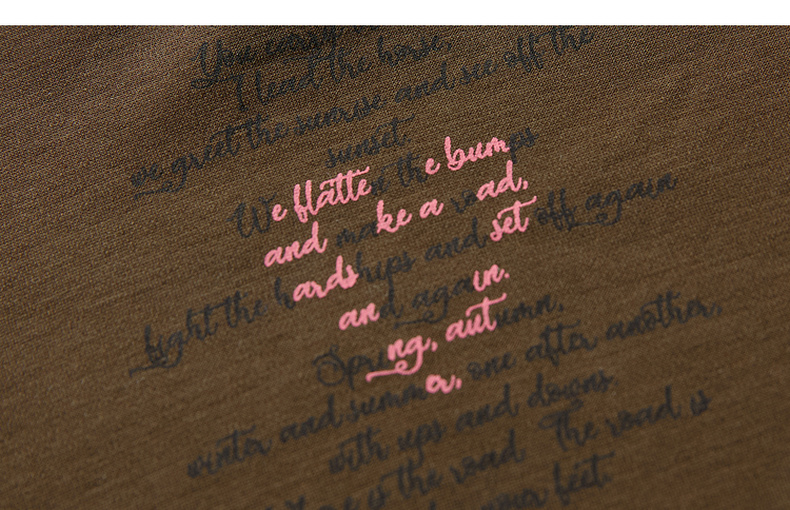 You carry
I lead the horse,
we greet the sunrise and see off the
sunset.
We flatten the bumps
and make a road,
fight the hardships and set off again
and again.
Spring, autumn,
winter and summer, one after another,
with ups and downs.
is the road. The road is
your feet.